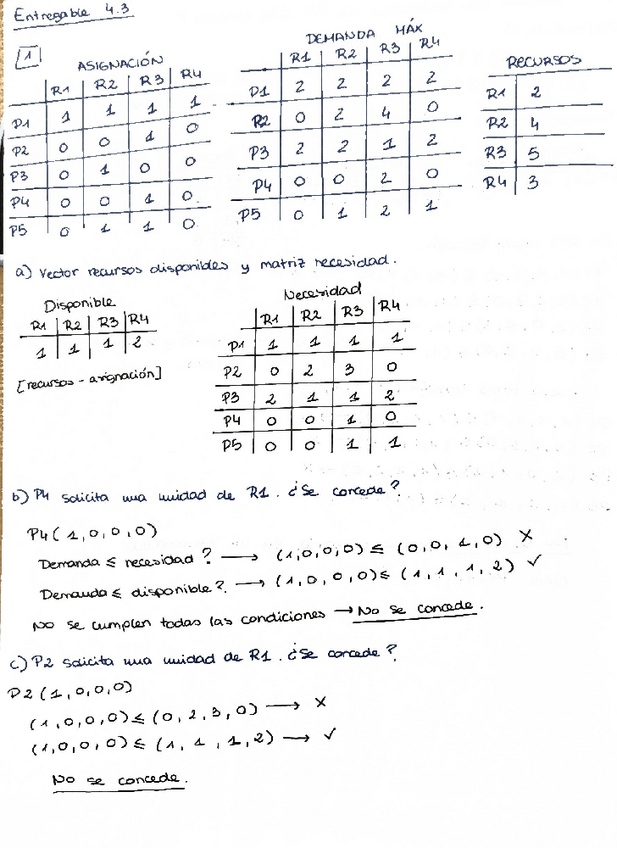 Entregable 4.3
1
ASIGNACIÓN
R1 R2 R3 R4
P1 1 1 1 1
P2 0 0 1 0
P3 0 1 0 0
P4 0 0 1 0
P5 0 1 1 0
DEMANDA MÁX
R1 R2 R3 R4
P1 2 2 2 2
R2 0 2 4 0
P3 2 2 1 2
P4 0 0 2 0
P5 0 1 2 1
RECURSOS
R1 2
R2 4
R3 5
R4 3
a) Vector recursos disponibles y matriz necesidad.
Disponible
R1 R2 R3 R4
1 1 1 2
[recursos - asignación]
Necesidad
R1 R2 R3 R4
P1 1 1 1 1
P2 0 2 3 0
P3 2 1 1 2
P4 0 0 1 0
P5 0 0 1 1
b) P4 solicita una unidad de R1. ¿Se concede?
P4 (1,0,0,0)
Demanda ≤ necesidad? → (1,0,0,0) ≤ (0,0,1,0) X
Demanda ≤ disponible? → (1,0,0,0) ≤ (1,1,1,2) ✓
No se cumplen todas las condiciones → No se concede.
c) P2 solicita una unidad de R1. ¿Se concede?
P2 (1,0,0,0)
(1,0,0,0) ≤ (0,2,3,0) → X
(1,0,0,0) ≤ (1,1,1,2) → ✓
No se concede.